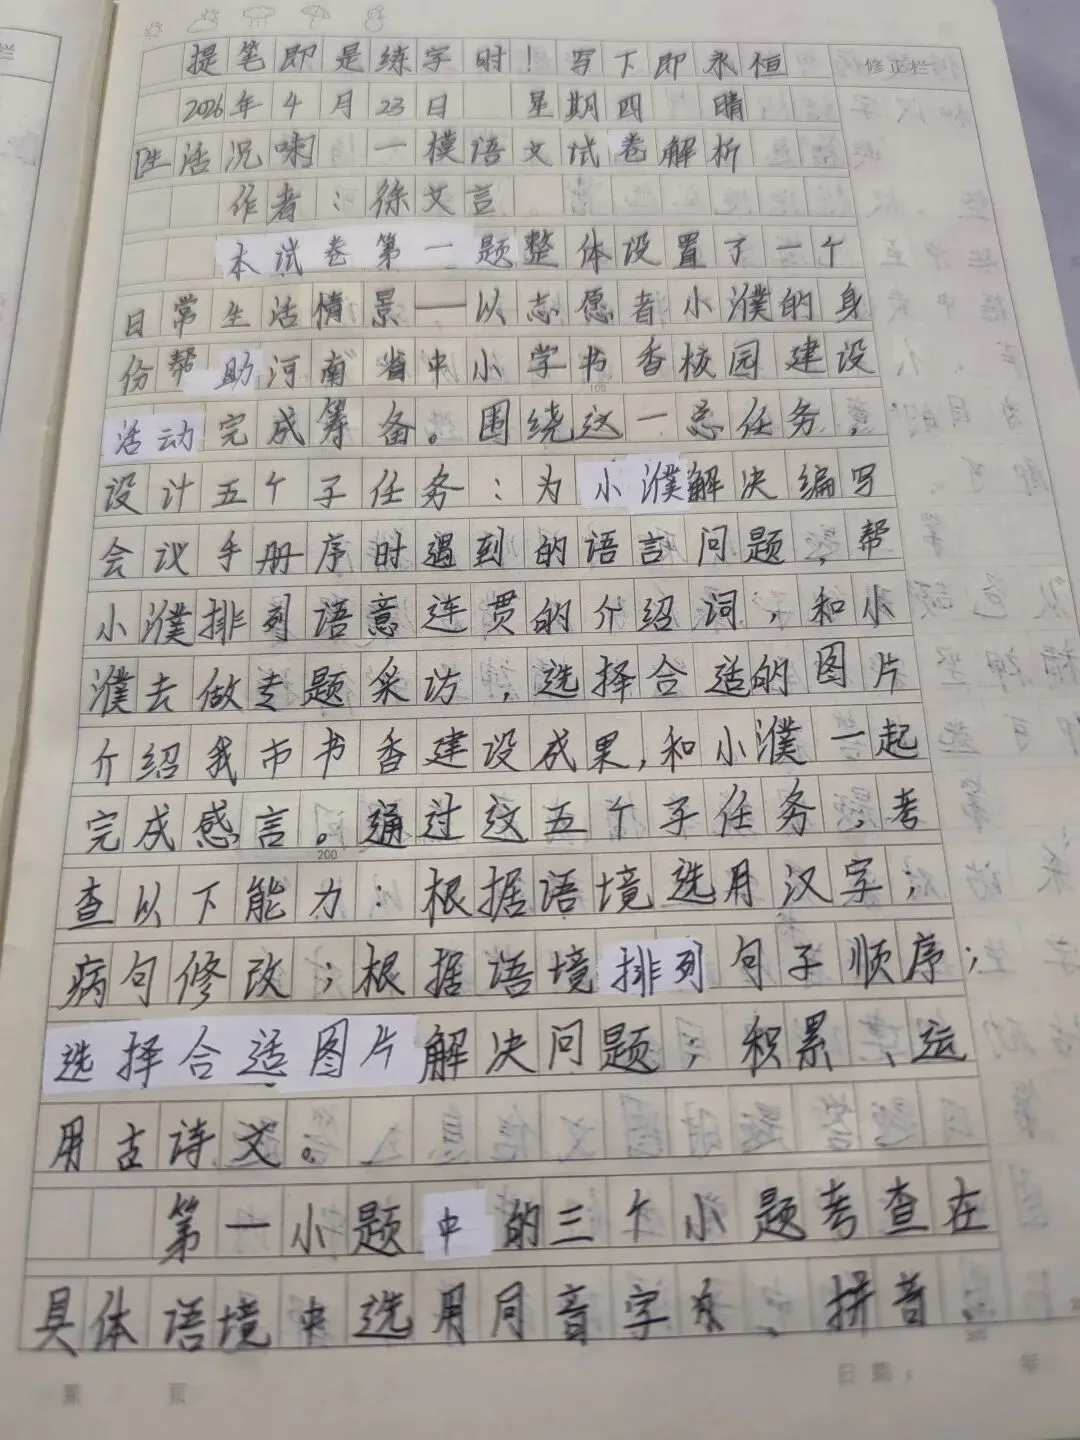 提笔即是练字时！写下即永恒
修正栏
2026年4月23日 星期四 晴
[生活况味] 一模语文试卷解析
作者：徐文言
本试卷第一题整体设置了一个
日常生活情景——以志愿者小濮的身
份帮助河南省中小学书香校园建设
活动完成筹备。围绕这一总任务，
设计五个子任务：为小濮解决编写
会议手册序时遇到的语言问题，帮
小濮排列语意连贯的介绍词，和小
濮去做专题采访，选择合适的图片
介绍我市书香建设成果，和小濮一起
完成感言。通过这五个子任务，考
200
查以下能力：根据语境选用汉字；
病句修改；根据语境排列句子顺序；
选择合适图片解决问题；积累、运
用古诗文。
第一小题中的三个小题考查在
具体语境中选用同音字、拼音、
第 页
日期： 年